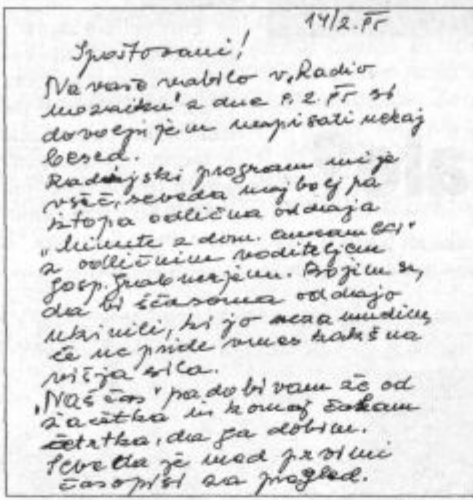 14/2. 
Spoštovani!
Na vaše vabilo v „Radio
mozaiku" z dne 8. 2. si
dovoljujem napisati nekaj
besed.
Radijski program mi je
všeč, seveda najbolj pa
iztopa odlična oddaja
„Minute z dom. ansambli"
z odličnim voditeljem
gosp. Grabnerjem. Bojim se,
da bi sčasoma oddajo
ukinili, ki jo nudim,
če ne pride vmes kakšna
višja sila.
„Naš čas" pa dobivam že od
začetka in komaj čakam
četrtka, da ga dobim.
Seveda je med prvimi
časopisi za pregled.